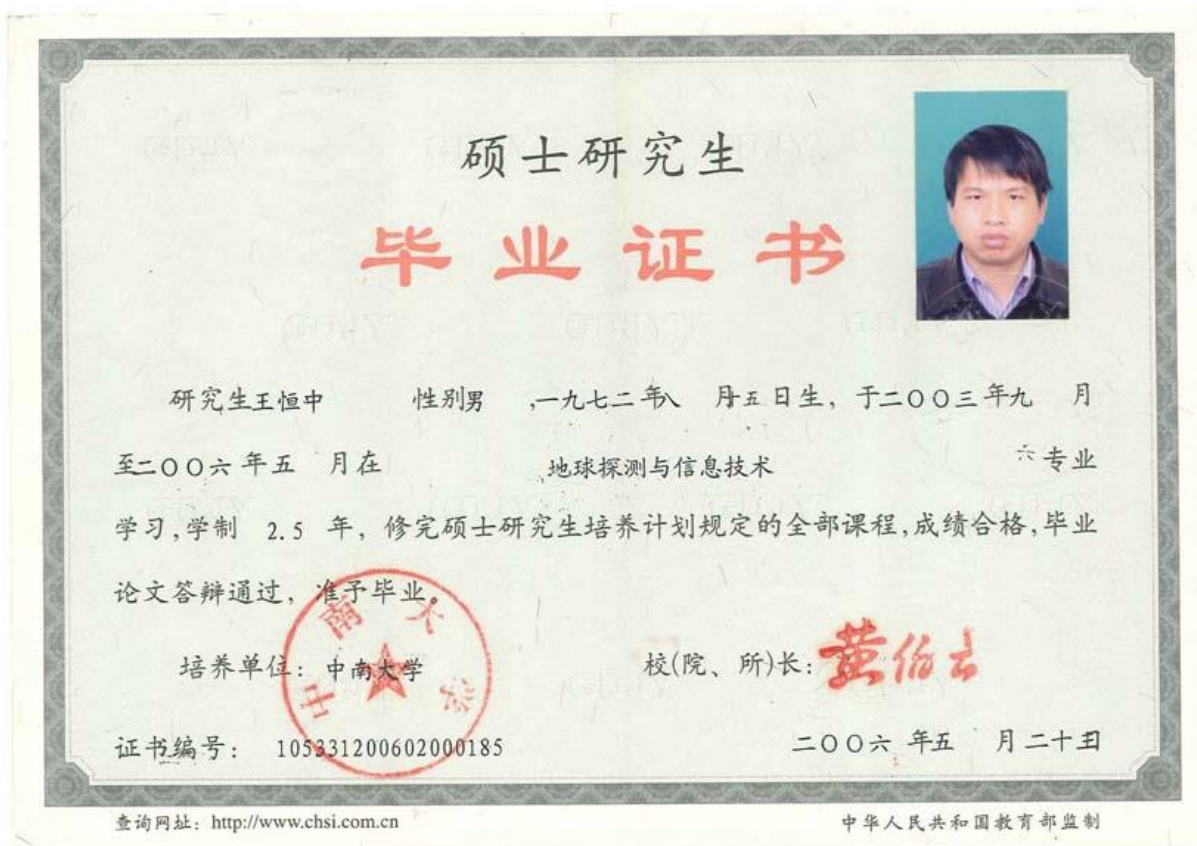 硕士研究生
毕业证书
研究生王恒中 性别男 ,一九七二年八 月十五日生，于二〇〇三年九 月
至二〇〇六年五 月在 地球探测与信息技术 专业
学习,学制 2.5 年，修完硕士研究生培养计划规定的全部课程,成绩合格,毕业
论文答辩通过，准予毕业。
中南大学
培养单位：中南大学 校(院、所)长：黄伯云
证书编号： 105331200602000185 二〇〇六年五 月二十日
查询网址：http://www.chsi.com.cn 中华人民共和国教育部监制